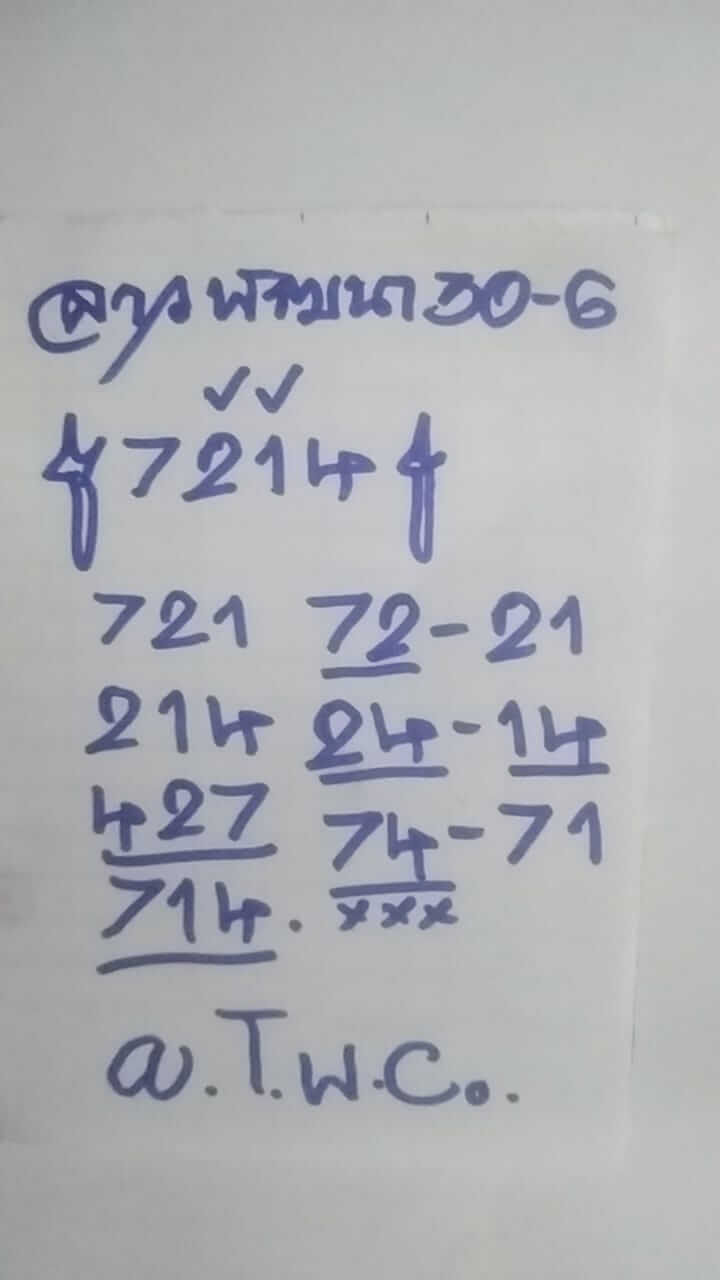 ลาวพัฒนา 30-6
✓✓
7214
721 72-21
214 24-14
427 74-71
714. xxx
อ.T.พ.C..